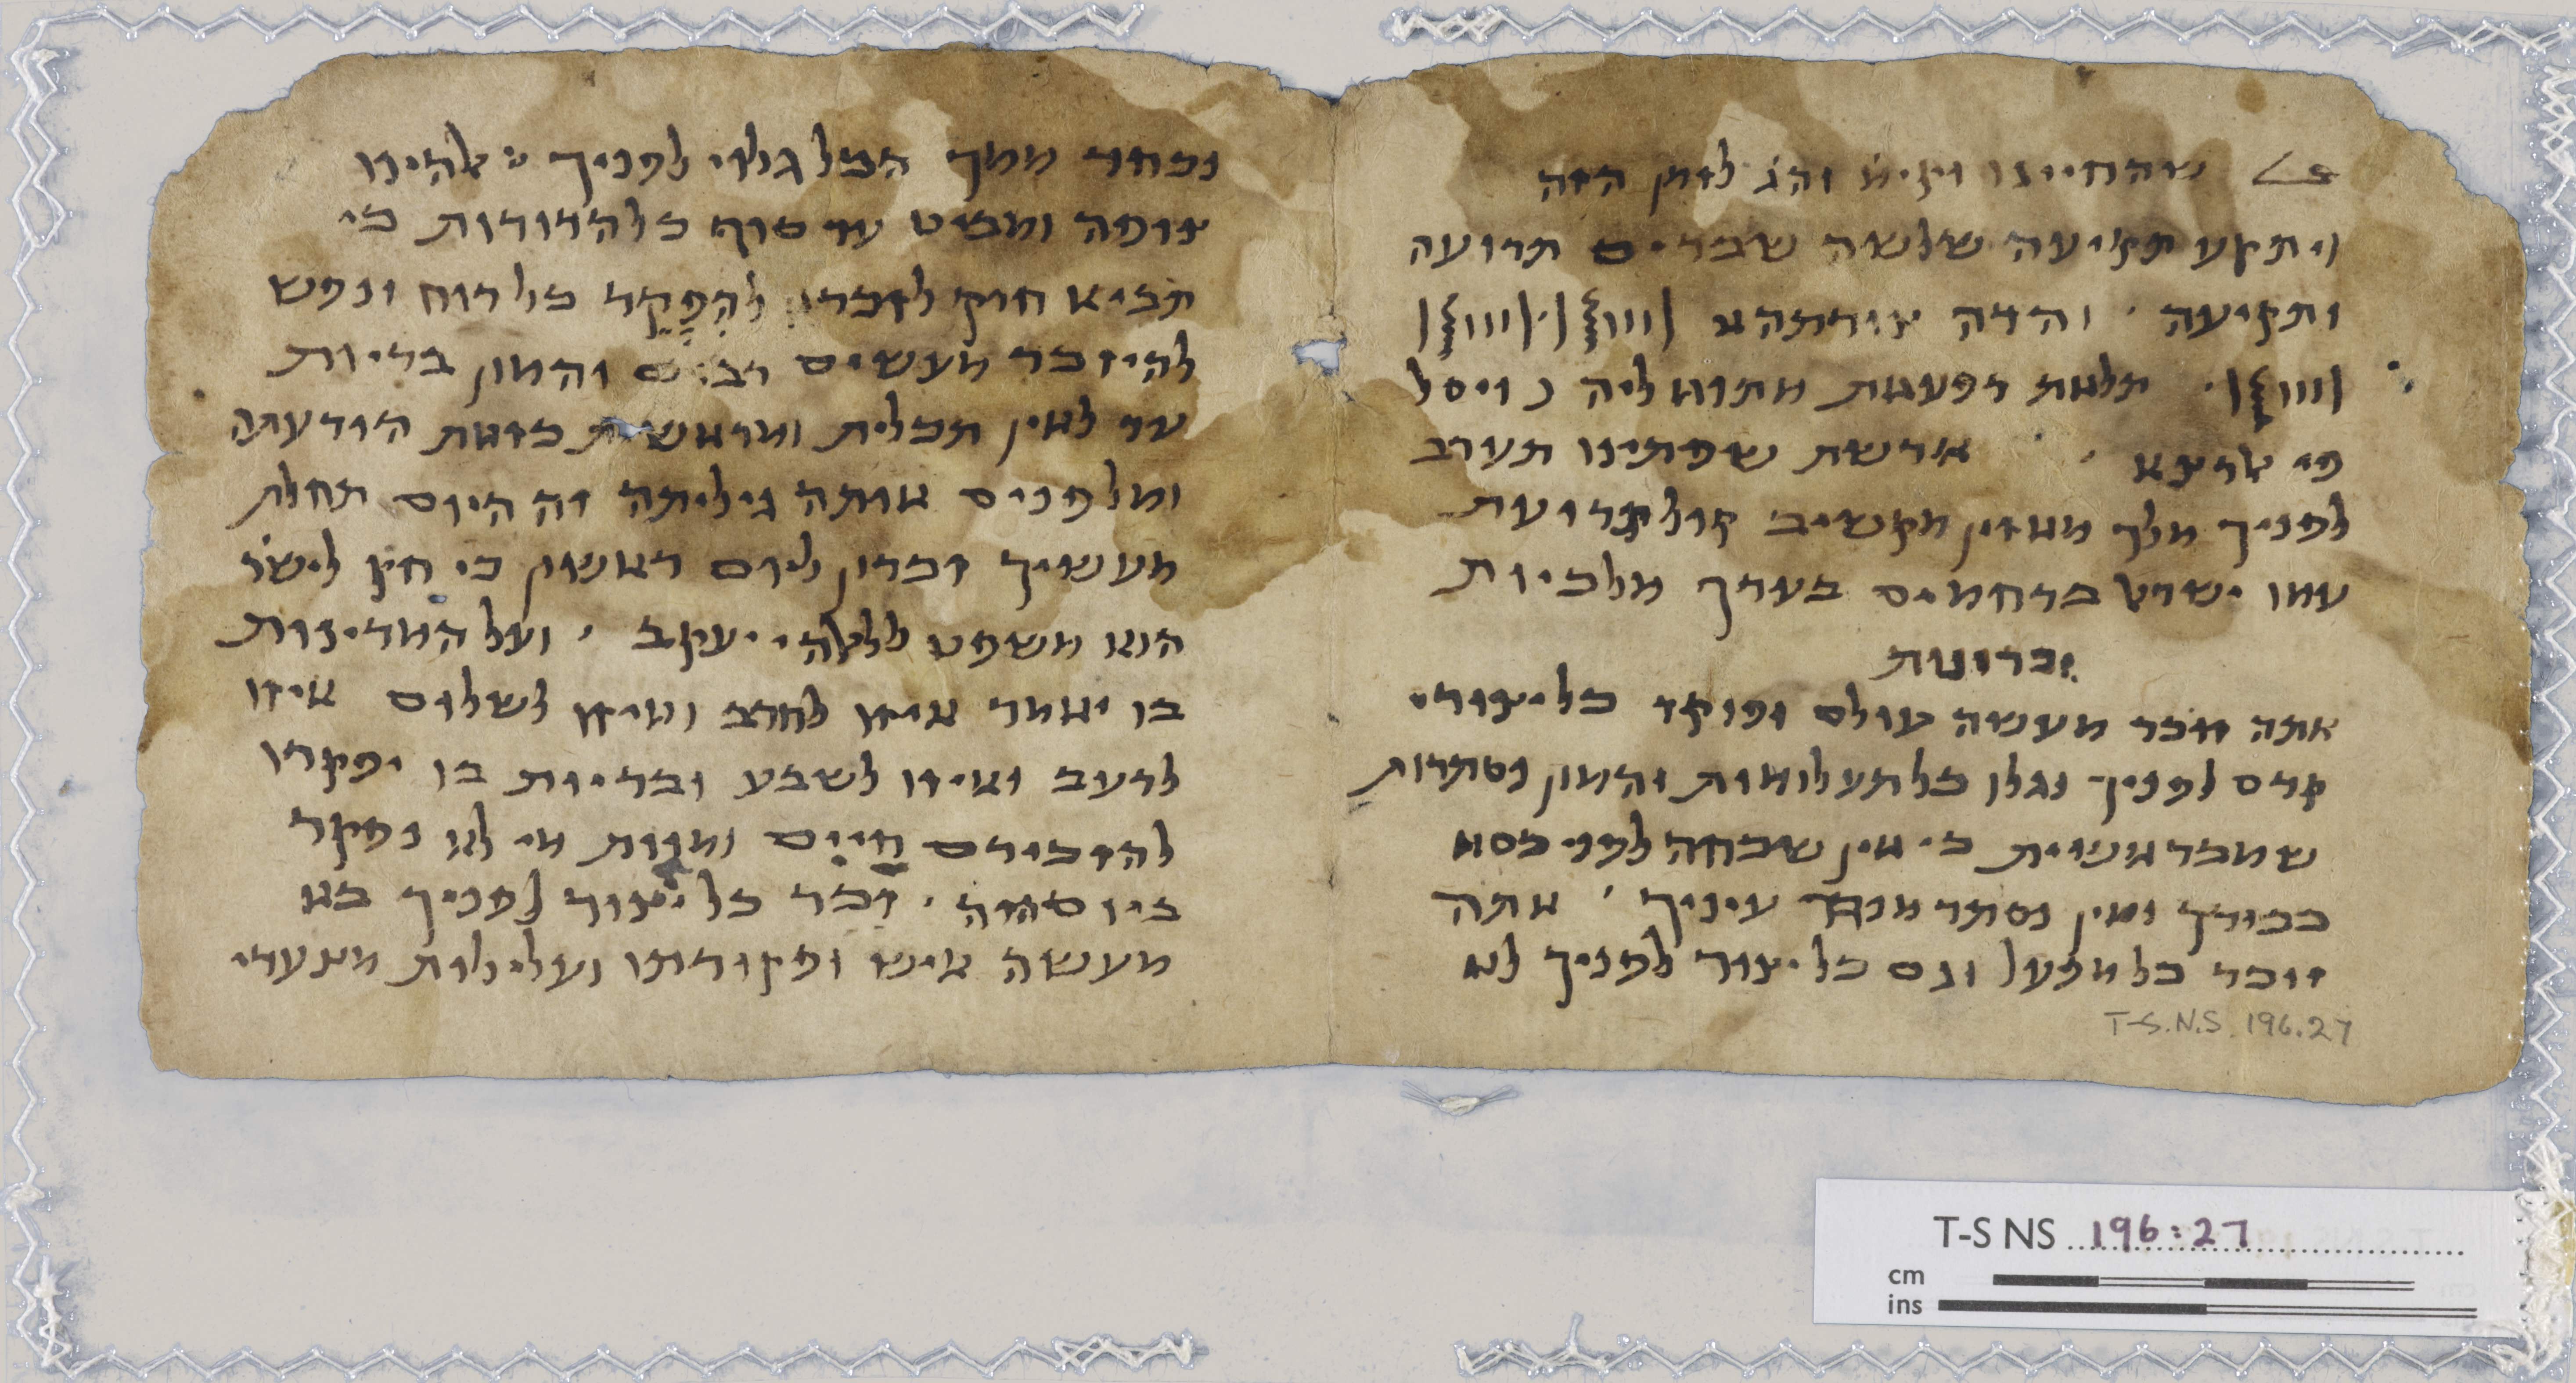 שהחיינו וקימ והג לזמן הזה
ויתקע תקיעה שלשה שברים תרועה
ותקיעה · והדה צורתהא
תלאת דפעאת מתואליה ויסל
פי אדצא · ארשת שפתינו תערב
לפניך מלך מאזין מקשיב קול תרועת
עמו ישראל ברחמים בערך מלכיות
זכרונות
אתה זוכר מעשה עולם ופוקד כל יצורי
קדם לפניך נגלו כל תעלומות והמון נסתרות
שמבראשית כי אין שכחה לפני כסא
כבודך ואין נסתר מנגד עיניך · אתה
זוכר כל מפעל וגם כל יצור לפניך לא
T-S.N.S. 196.27
נכחד ממך הכל גלוי לפניך אלהינו
צופה ומביט עד סוף כל הדורות כי
תביא חוק לזכרון להפקד כל רוח ונפש
להיזכר מעשים רבים והמון בריות
עד לאין תכלית ומראשית כזאת הודעתה
ומלפנים אותה גיליתה זה היום תחלת
מעשיך זכרון ליום ראשון כי חוק לישר
הוא משפט לאלהי יעקב · ועל המדינות
בו יאמר איזו לחרב ואיזו לשלום איזו
לרעב ואיזו לשבע ובריות בו יפקדו
להזכירם חיים ומות מי לא נפקד
כיום הזה · זכר כל יצור לפניך בא
מעשה איש ופקודתו ועלילות מצעדי
T-S NS 196:27
cm
ins